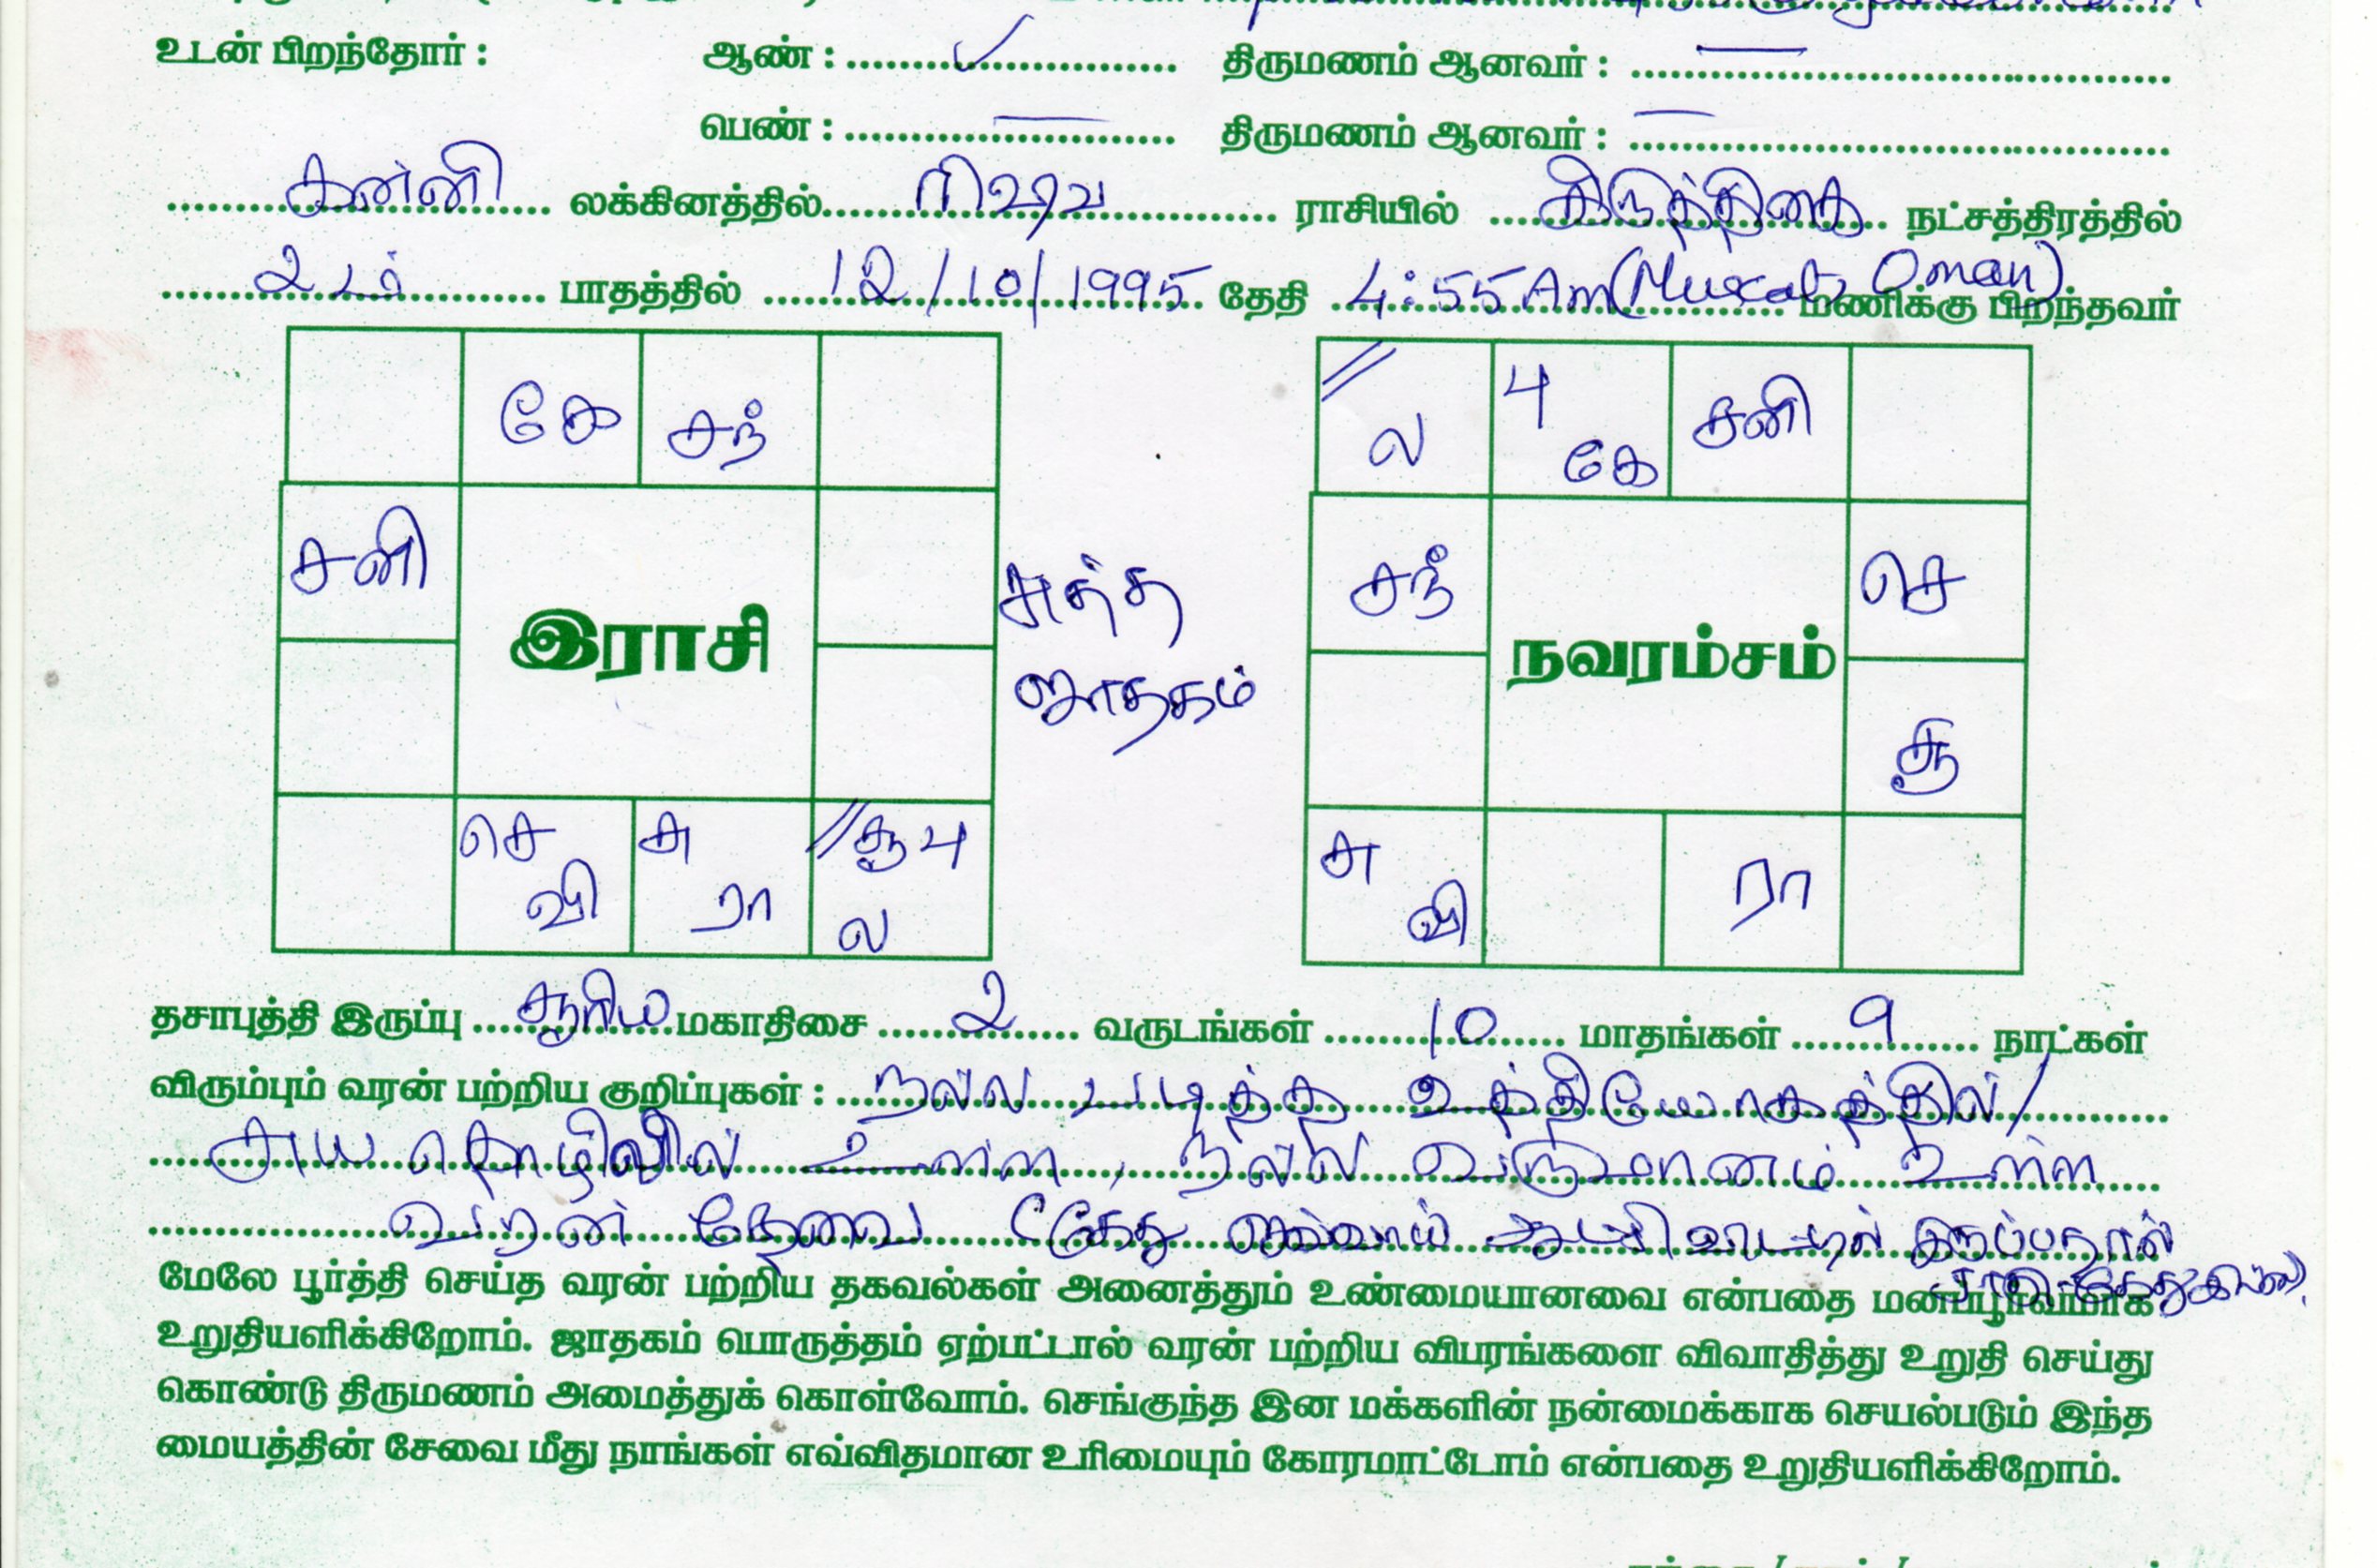 உடன் பிறந்தோர் : ஆண் : ✓ திருமணம் ஆனவர் : —
பெண் : — திருமணம் ஆனவர் : —
கன்னி லக்கினத்தில் ரிஷப ராசியில் கிருத்திகை நட்சத்திரத்தில்
2ம் பாதத்தில் 12/10/1995 தேதி 4:55 Am (Muscat, Oman) மணிக்கு பிறந்தவர்
கே சந்
சனி
இராசி
செ வி சு ரா // சூ பு ல
சுத்த
ஜாதகம்
// ல பு கே சனி
சந் செ
நவரம்சம்
சூ
சு வி ரா
தசாபுத்தி இருப்பு சூரிய மகாதிசை 2 வருடங்கள் 10 மாதங்கள் 9 நாட்கள்
விரும்பும் வரன் பற்றிய குறிப்புகள் : நல்ல படித்த உத்தியோகத்தில்/
சுய தொழிலில் உள்ள, நல்ல வருமானம் உள்ள
வரன் தேவை (கேது செவ்வாய் ஆட்சி வீட்டில் இருப்பதால்
மேலே பூர்த்தி செய்த வரன் பற்றிய தகவல்கள் அனைத்தும் உண்மையானவை என்பதை மனப்பூர்வமாக
உறுதியளிக்கிறோம். ஜாதகம் பொருத்தம் ஏற்பட்டால் வரன் பற்றிய விபரங்களை விவாதித்து உறுதி செய்து
கொண்டு திருமணம் அமைத்துக் கொள்வோம். செங்குந்த இன மக்களின் நன்மைக்காக செயல்படும் இந்த
மையத்தின் சேவை மீது நாங்கள் எவ்விதமான உரிமையும் கோரமாட்டோம் என்பதை உறுதியளிக்கிறோம்.